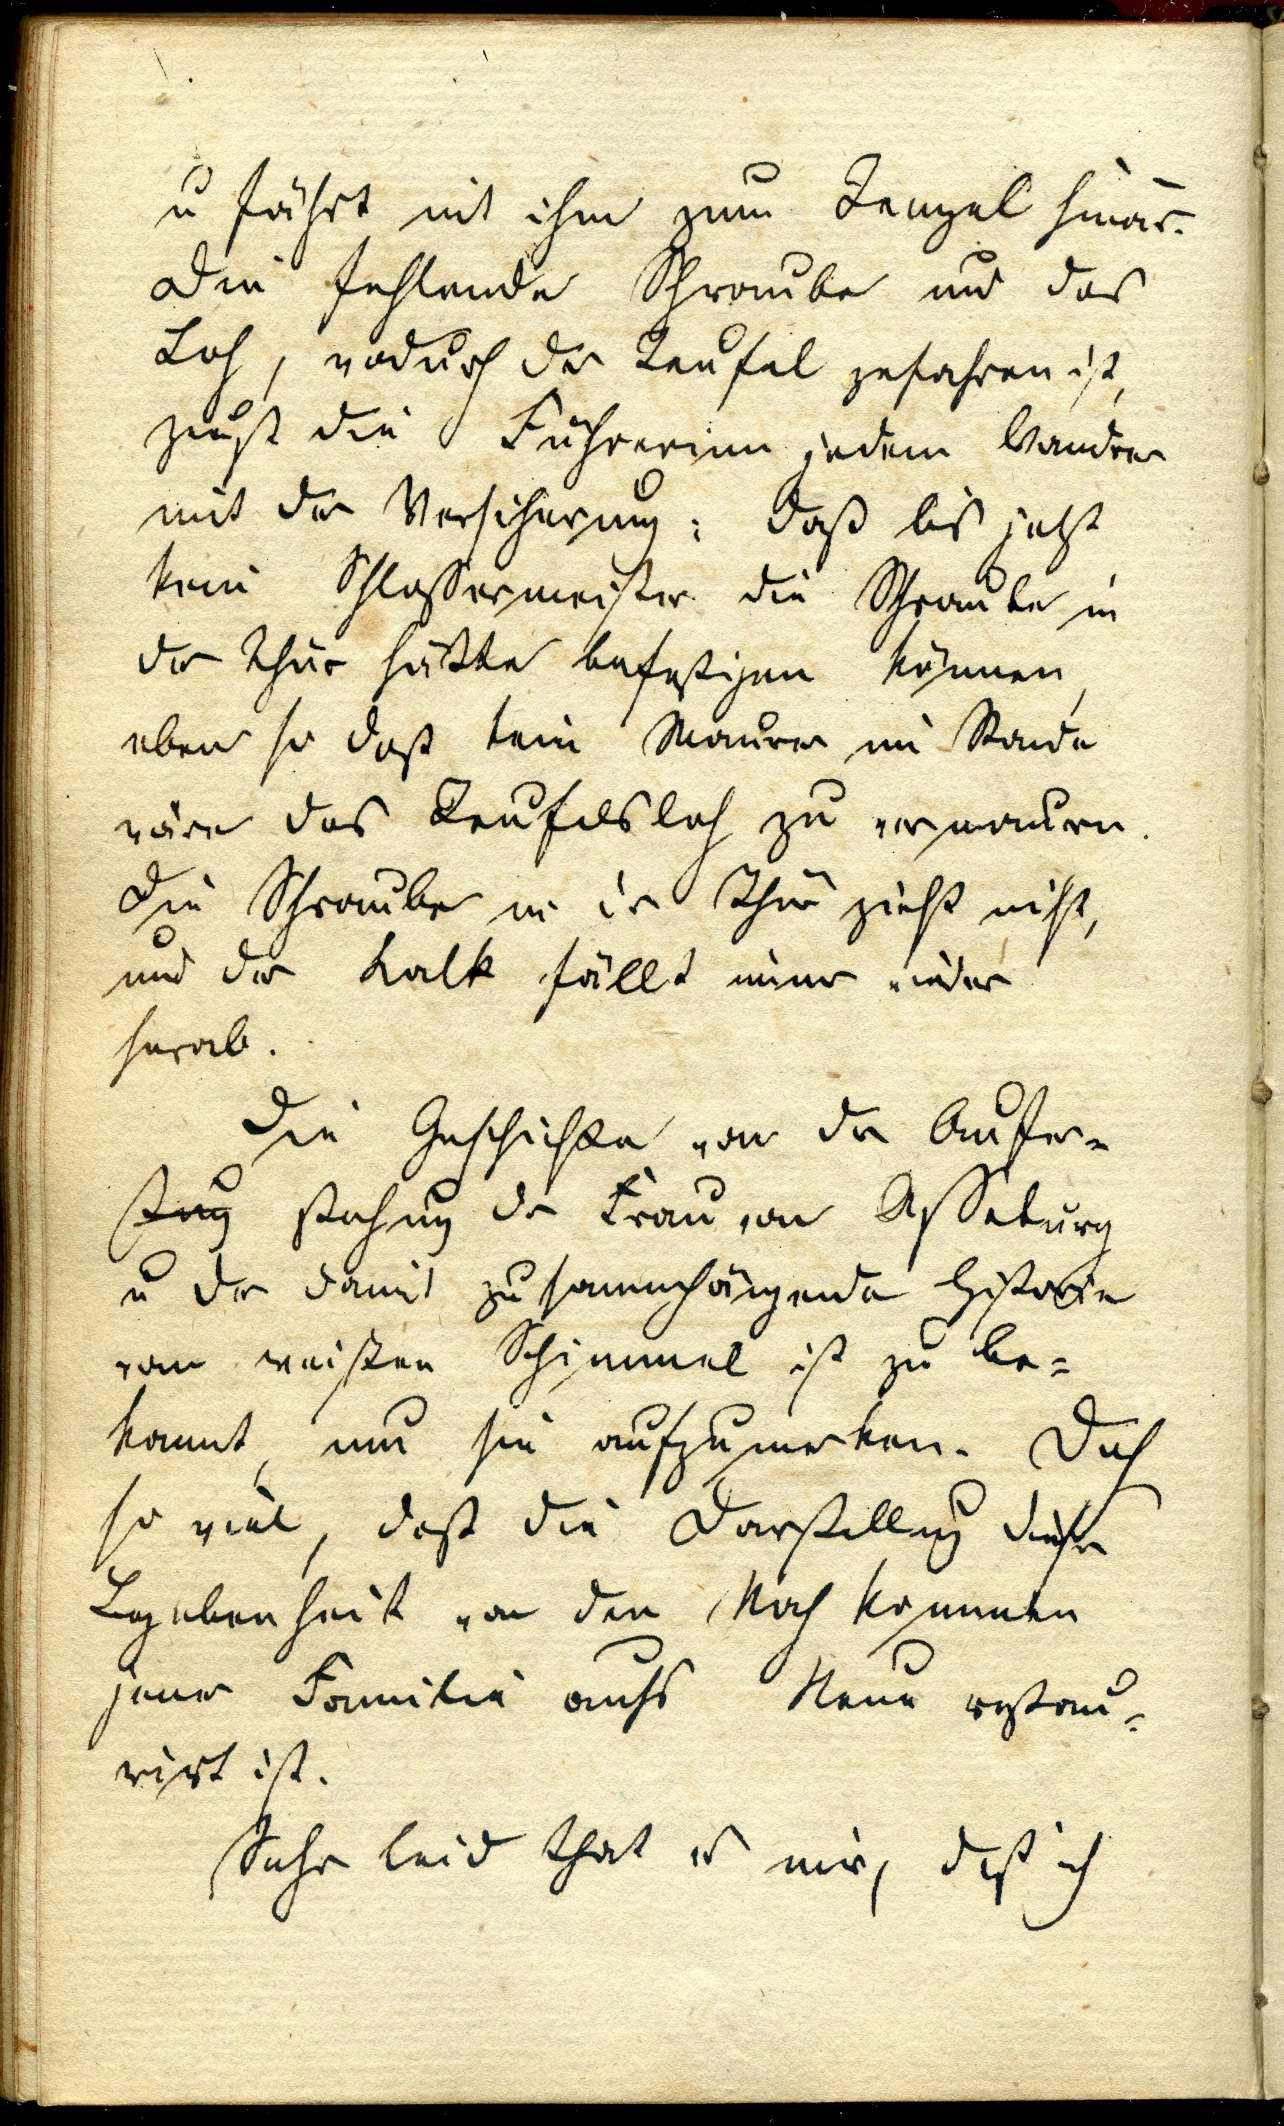 u fährt mit ihm zum Tempel hinaus.
Die fehlende Schraube und das
Loch, wodurch der Teufel gefahren ist,
zeigt die Führerinn jedem Wandrer
mit der Versicherung: daß bis jetzt
kein Schlossermeister die Schraube in
der Thür hätte befestigen können,
eben so daß kein Maurer im Stande
wäre das Teufelsloch zu vermauren.
Die Schraube in der Thür zieht nicht,
und der Kalk fällt immer wieder
herab.
Die Geschichte von der Aufer-
stehung der Frau von Asseburg
u der damit zusammenhängende Historie
vom weißen Schimmel ist zu be-
kannt, um sie aufzumerken. Doch
so viel, daß die Darstellung dieser
Begebenheit von den Nachkommen
jener Familie aufs Neue restau-
rirt ist.
Sehr leid that es mir, daß ich